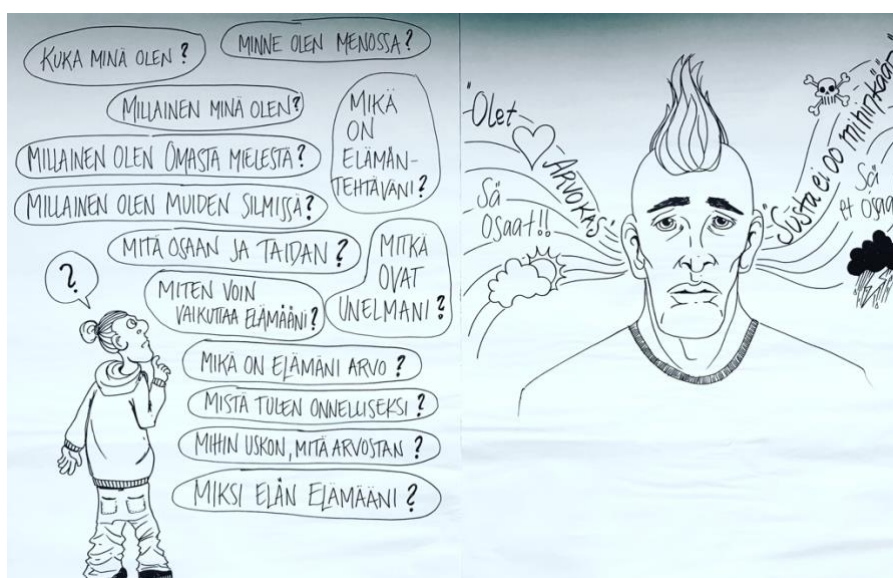 KUKA MINÄ OLEN?
MINNE OLEN MENOSSA?
MILLAINEN MINÄ OLEN?
MIKÄ
ON
ELÄMÄN-
TEHTÄVÄNI?
MILLAINEN OLEN OMASTA MIELESTÄ?
MILLAINEN OLEN MUIDEN SILMISSÄ?
MITÄ OSAAN JA TAIDAN?
MITKÄ
OVAT
UNELMANI?
?
MITEN VOIN
VAIKUTTAA ELÄMÄÄNI?
MIKÄ ON ELÄMÄNI ARVO?
MISTÄ TULEN ONNELLISEKSI?
MIHIN USKON, MITÄ ARVOSTAN?
MIKSI ELÄN ELÄMÄÄNI?
"Olet
ARVOKAS"
Sä
osaat!!
"Susta ei oo mihinkään"
Sä
et osaa